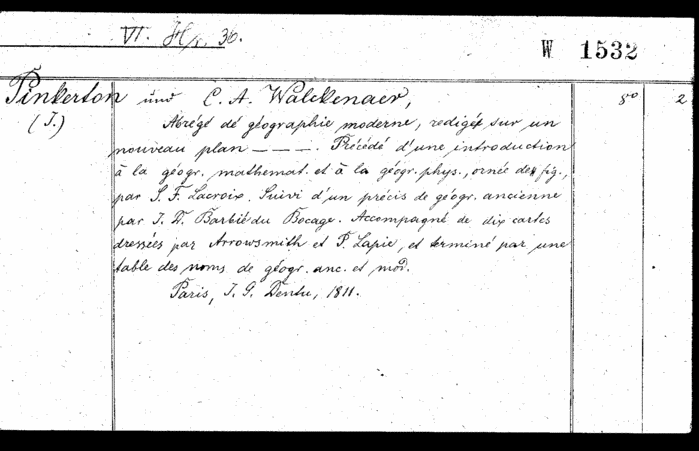 VI. H/r. 36.
W 1532
Pinkerton und C. A. Walckenaer, 8° 2
(J.)
Abrégé de géographie moderne, redigée sur un
nouveau plan — — —. Précédé d'une introduction
à la géogr. mathemat. et à la géogr. phys., ornée des fig.,
par S. F. Lacroix. Suivi d'un précis de géogr. ancienne
par J. D. Barbié du Bocage. Accompagné de dix cartes
dressées par Arrowsmith et P. Lapie, et terminé par une
table des noms de géogr. anc. et mod.
Paris, J. G. Dentu, 1811.